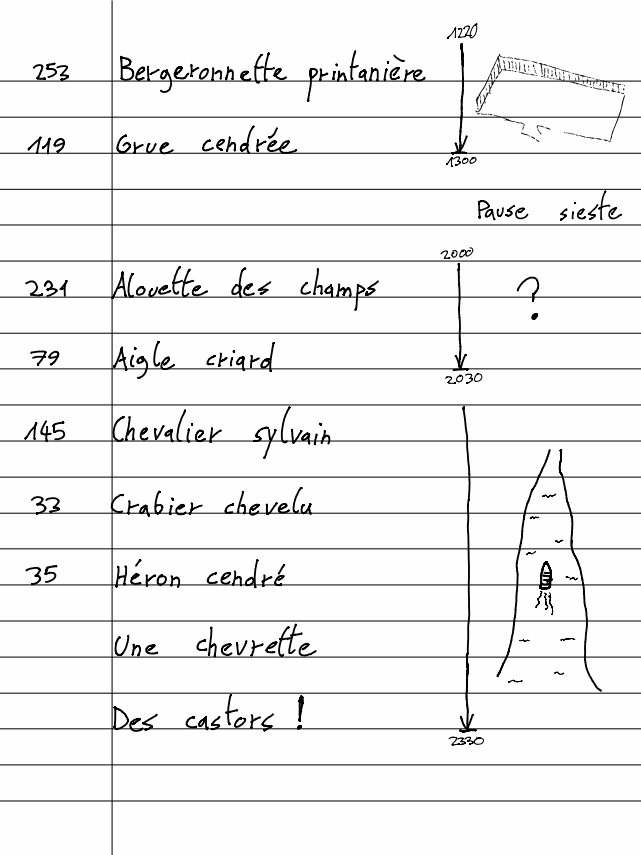 1220
253 Bergeronnette printanière
119 Grue cendrée
1300
Pause sieste
2000
231 Alouette des champs ?
79 Aigle criard
2030
145 Chevalier sylvain
33 Crabier chevelu
35 Héron cendré
Une chevrette
Des castors !
2330